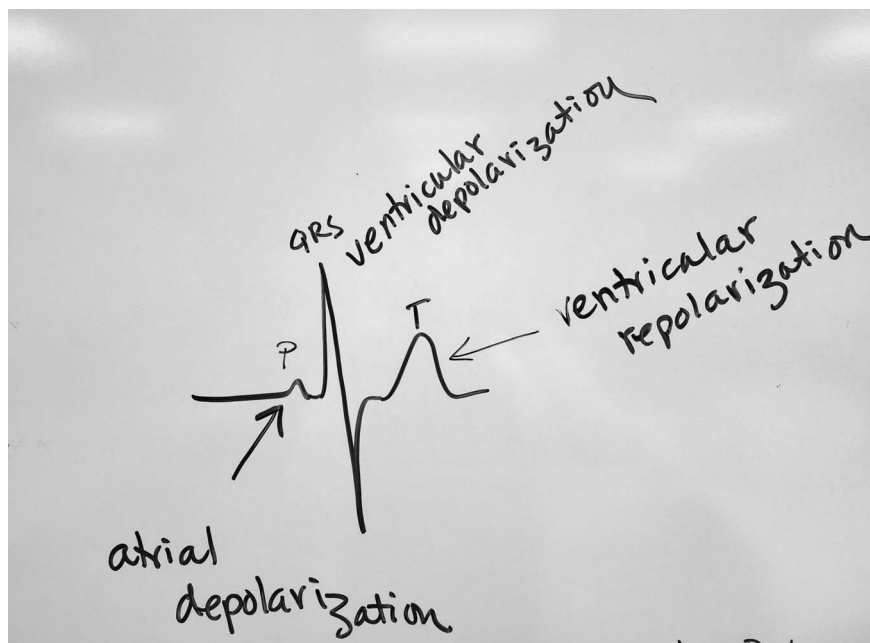 QRS
ventricular
depolarization
P
T
ventricular
repolarization
atrial
depolarization